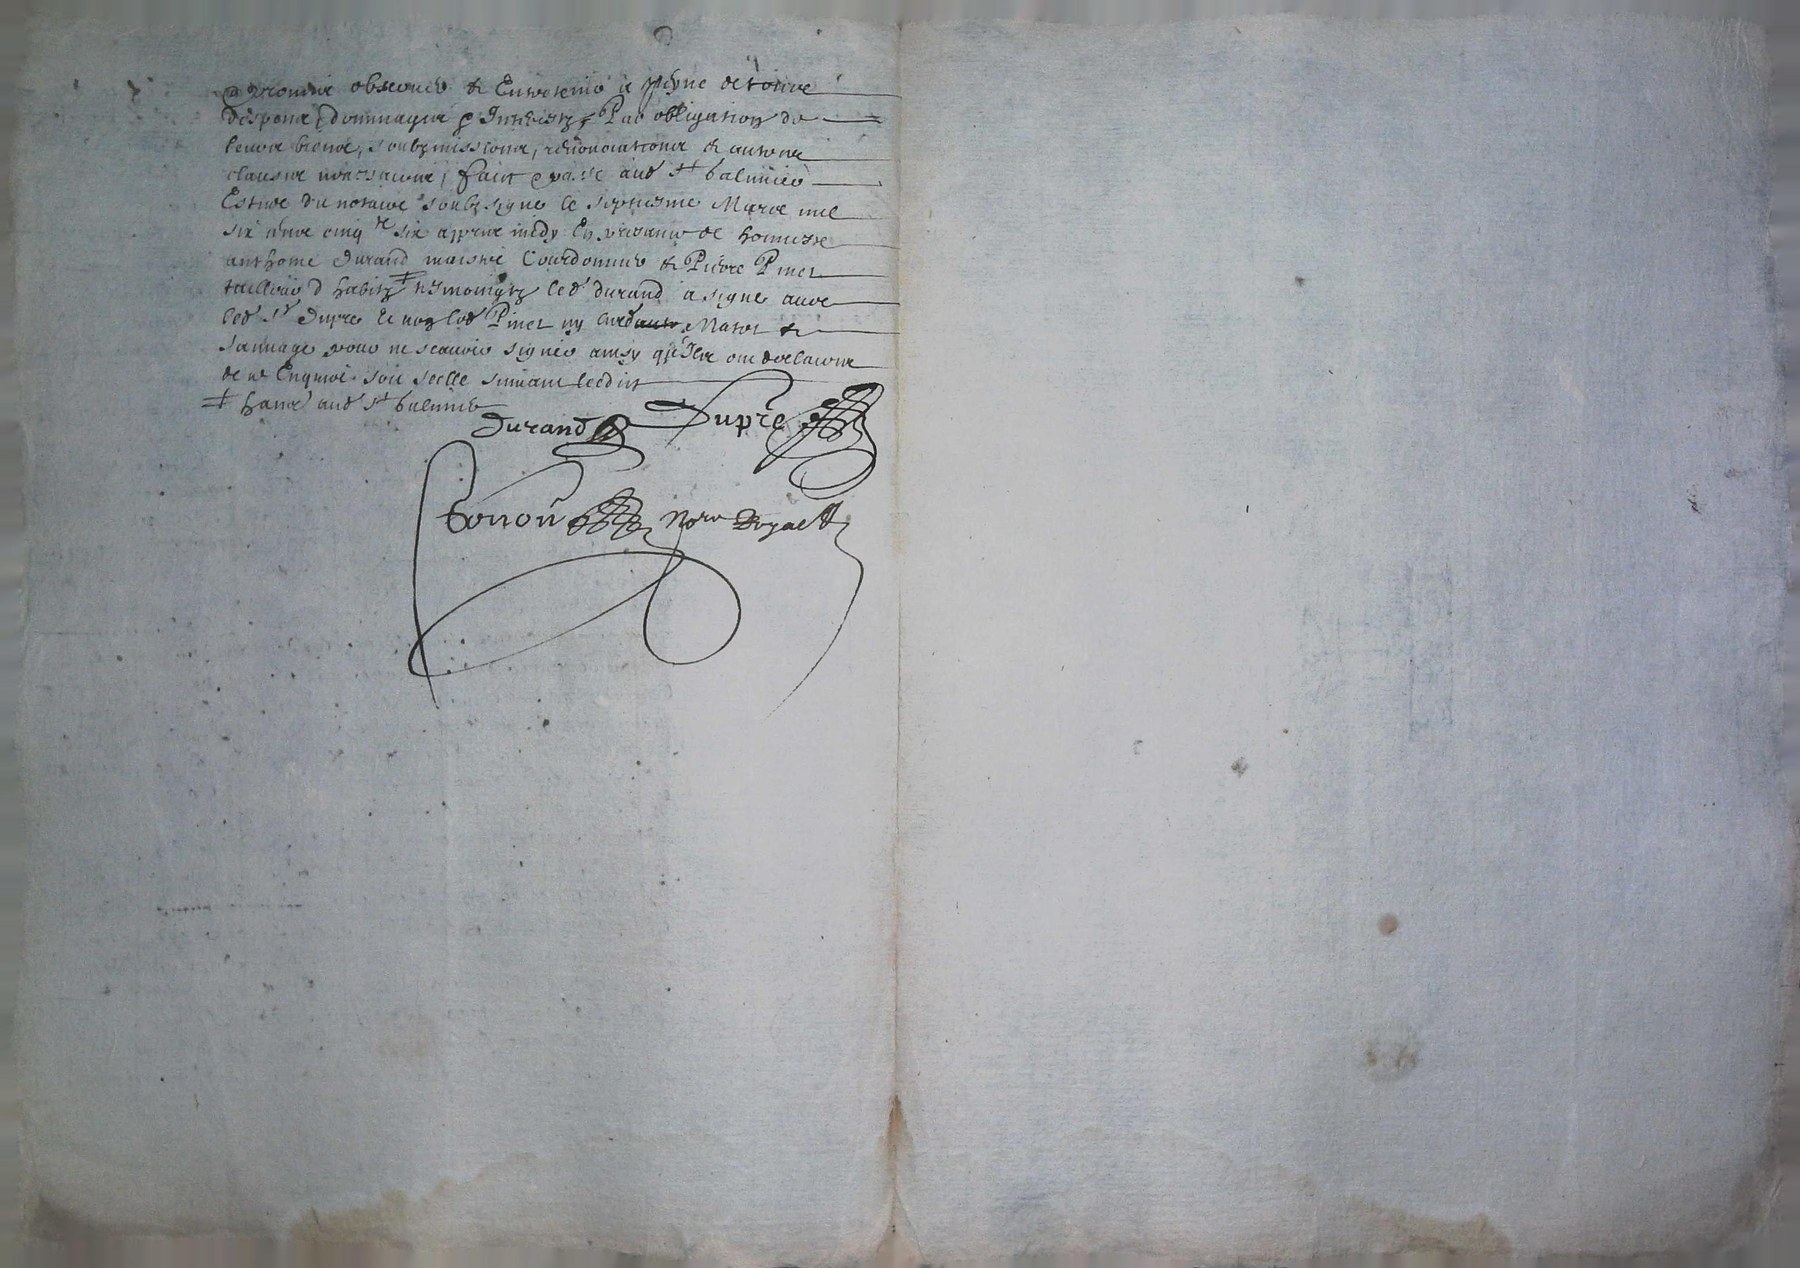 promis observer & Entretenir a peyne de toutz
despans dommages & Interestz Par obligation de
leurs biens, soubzmissions, renonciations & autres
clauses necessaires, faict & passé aud st Galmier
Estude du notaire soubsigne le septiesme Mars mil
six cens cinqte six appres midy En presance de honneste
anthoine Durand maistre Courdonnier & Pierre Pinet
tailleur d habitz ╪ tesmoingtz led durand a signe avec
led sr Dupre & non led Pinet ny lesd Matot &
Sauuage pour ne scauoir signer ainsy qu'Ilz ont declairé
de ce Enquis soit scelle suiuant leedict
╪ hantz aud st Galmier
Durand Dupre
Bonon Nore Royal